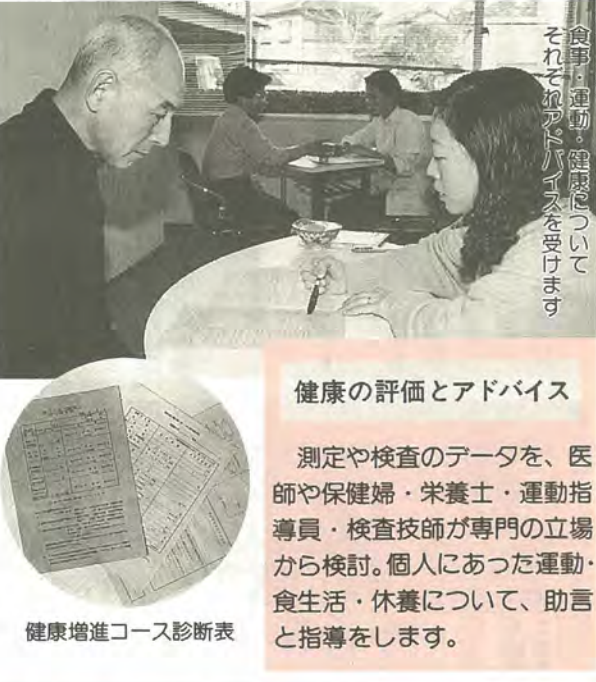 食事・運動・健康について
それぞれアドバイスを受けます
健康の評価とアドバイス
測定や検査のデータを、医
師や保健婦・栄養士・運動指
導員・検査技師が専門の立場
から検討。個人にあった運動・
食生活・休養について、助言
と指導をします。
健康増進コース診断表